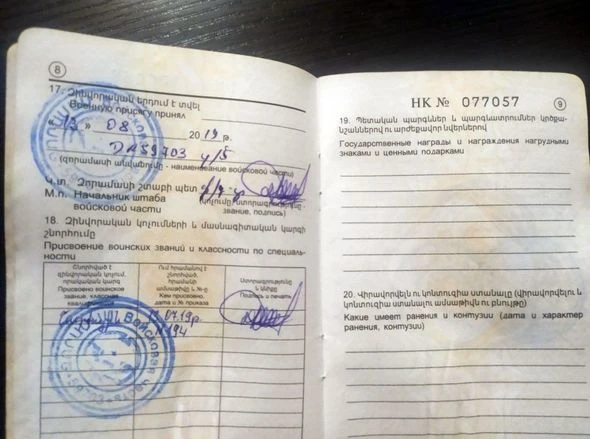 8
17. Զինվորական երդում է տվել
Военную присягу принял
« 13 » 08 2019 թ.
59703
(զորամասի անվանումը - наименование войсковой части)
Կ.տ. Զորամասի շտաբի պետ
М.п. Начальник штаба
войсковой части
(կոչումը, ստորագրությունը -
звание, подпись)
18. Զինվորական կոչումների և մասնագիտական կարգի
շնորհումը
Присвоение воинских званий и классности по специаль-
ности
Շնորհված է
զինվորական կոչում,
որակական կարգ
Присвоено воинское
звание, классная
Ում հրամանով է
շնորհված,
հրամանի
ամսաթիվը և №-ը
Кем присвоено,
дата и № приказа
Ստորագրությունը
և կնիքը
Подпись и печать
07.19թ.
N 194
НК № 077057
9
19. Պետական պարգևներ և պարգևատրումներ կրծքա-
նշաններով ու արժեքավոր նվերներով
Государственные награды и награждения нагрудными
знаками и ценными подарками
20. Վիրավորվելն ու կոնտուզիա ստանալը (վիրավորվելու և
կոնտուզիա ստանալու ամսաթիվն ու բնույթը)
Какие имеет ранения и контузии (дата и характер
ранения, контузии)